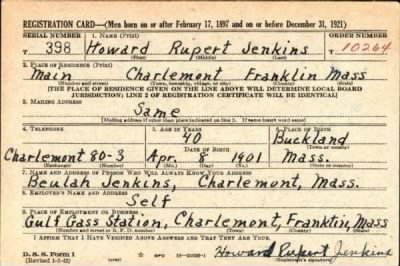 REGISTRATION CARD—(Men born on or after February 17, 1897 and on or before December 31, 1921)
SERIAL NUMBER 1. NAME (Print) ORDER NUMBER
T 398 Howard Rupert Jenkins T 10264
(First) (Middle) (Last)
2. PLACE OF RESIDENCE (Print)
Main Charlemont Franklin Mass
(Number and street) (Town, township, village, or city) (County) (State)
[THE PLACE OF RESIDENCE GIVEN ON THE LINE ABOVE WILL DETERMINE LOCAL BOARD
JURISDICTION; LINE 2 OF REGISTRATION CERTIFICATE WILL BE IDENTICAL]
3. MAILING ADDRESS
Same
[Mailing address if other than place indicated on line 2. If same insert word same]
4. TELEPHONE 5. AGE IN YEARS 6. PLACE OF BIRTH
40 Buckland
DATE OF BIRTH (Town or county)
Charlemont 80-3 Apr. 8 1901 Mass.
(Exchange) (Number) (Mo.) (Day) (Yr.) (State or country)
7. NAME AND ADDRESS OF PERSON WHO WILL ALWAYS KNOW YOUR ADDRESS
Beulah Jenkins, Charlemont, Mass.
8. EMPLOYER'S NAME AND ADDRESS
Self
9. PLACE OF EMPLOYMENT OR BUSINESS
Gulf Gass Station, Charlemont, Franklin, Mass
(Number and street or R. F. D. number) (Town) (County) (State)
I AFFIRM THAT I HAVE VERIFIED ABOVE ANSWERS AND THAT THEY ARE TRUE.
D. S. S. Form 1 Howard Rupert Jenkins
(Revised 1-5-42) (over)